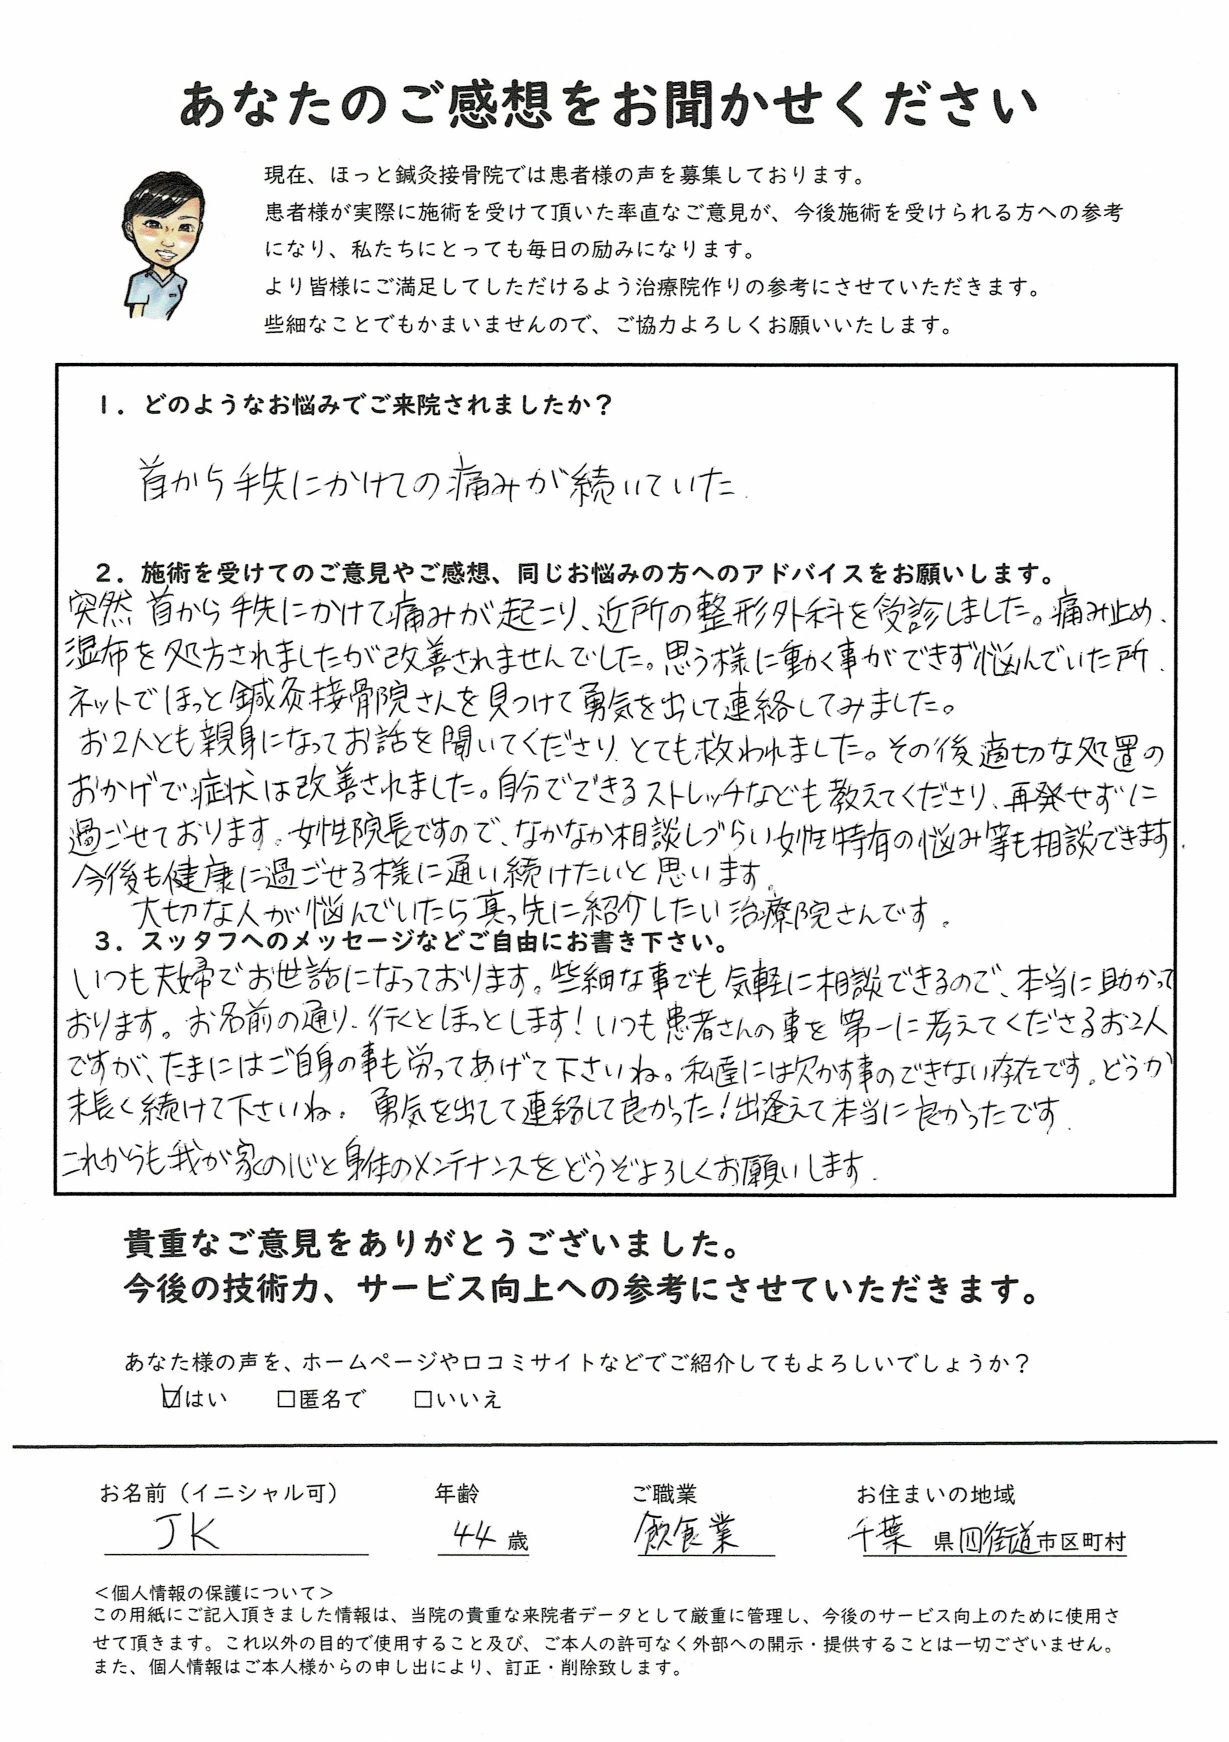 あなたのご感想をお聞かせください
現在、ほっと鍼灸接骨院では患者様の声を募集しております。
患者様が実際に施術を受けて頂いた率直なご意見が、今後施術を受けられる方への参考
になり、私たちにとっても毎日の励みになります。
より皆様にご満足してしただけるよう治療院作りの参考にさせていただきます。
些細なことでもかまいませんので、ご協力よろしくお願いいたします。
１．どのようなお悩みでご来院されましたか？
首から手先にかけての痛みが続いていた.
２．施術を受けてのご意見やご感想、同じお悩みの方へのアドバイスをお願いします。
突然、首から手先にかけて痛みが起こり、近所の整形外科を受診しました。痛み止め、
湿布を処方されましたが改善されませんでした。思う様に動く事ができず悩んでいた所、
ネットでほっと鍼灸接骨院さんを見つけて勇気を出して連絡してみました。
お2人とも親身になってお話を聞いてくださり、とても救われました。その後適切な処置の
おかげで症状は改善されました。自分でできるストレッチなども教えてくださり、再発せずに
過ごせております。女性院長ですので、なかなか相談しづらい女性特有の悩み等も相談できます.
今後も健康に過ごせる様に通い続けたいと思います。
大切な人が悩んでいたら真っ先に紹介したい治療院さんです。
３．スッタフへのメッセージなどご自由にお書き下さい。
いつも夫婦でお世話になっております。些細な事でも気軽に相談できるので、本当に助かって
おります。お名前の通り、行くとほっとします！いつも患者さんの事を第一に考えてくださるお2人
ですが、たまにはご自身の事も労ってあげて下さいね。私達には欠かす事のできない存在です。どうか
末長く続けて下さいね。勇気を出して連絡して良かった！出逢えて本当に良かったです.
これからも我が家の心と身体のメンテナンスをどうぞよろしくお願いします.
貴重なご意見をありがとうございました。
今後の技術力、サービス向上への参考にさせていただきます。
あなた様の声を、ホームページや口コミサイトなどでご紹介してもよろしいでしょうか？
☑はい　□匿名で　□いいえ
お名前（イニシャル可）　年齢　ご職業　お住まいの地域
JK　44 歳　飲食業　千葉 県四街道市区町村
＜個人情報の保護について＞
この用紙にご記入頂きました情報は、当院の貴重な来院者データとして厳重に管理し、今後のサービス向上のために使用さ
せて頂きます。これ以外の目的で使用すること及び、ご本人の許可なく外部への開示・提供することは一切ございません。
また、個人情報はご本人様からの申し出により、訂正・削除致します。